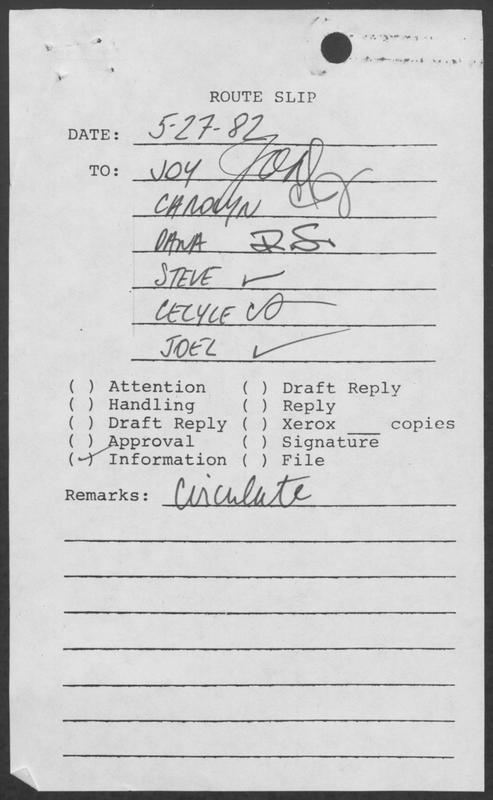 ROUTE SLIP
DATE: 5-27-82
TO: JOY Joy
CAROLYN
DANA D.S.
STEVE ✓
CECYLE
JOEL ✓
( ) Attention ( ) Draft Reply
( ) Handling ( ) Reply
( ) Draft Reply ( ) Xerox ___ copies
( ) Approval ( ) Signature
(✓) Information ( ) File
Remarks: Circulate